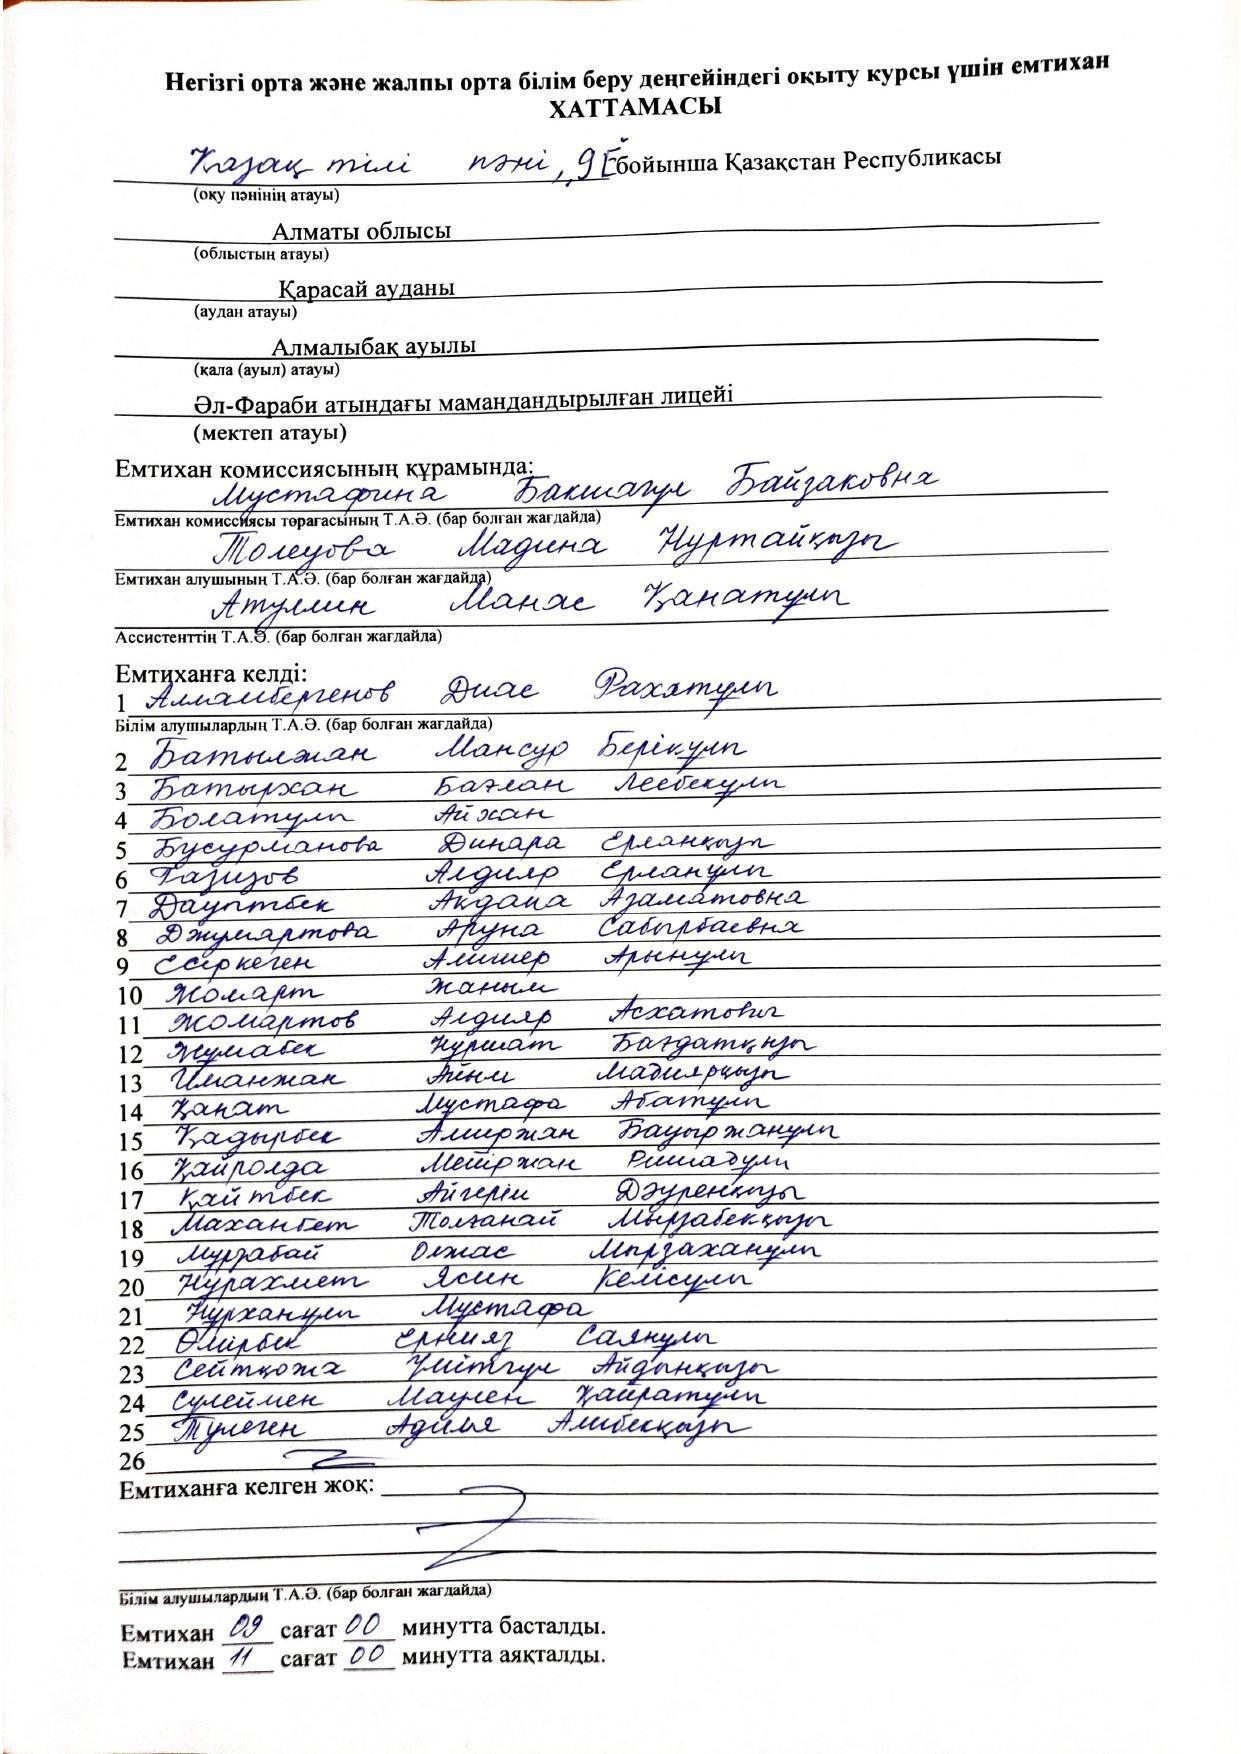 Негізгі орта және жалпы орта білім беру деңгейіндегі оқыту курсы үшін емтихан
ХАТТАМАСЫ
Қазақ тілі пәні, 9Ё бойынша Қазақстан Республикасы
(оқу пәнінің атауы)
Алматы облысы
(облыстың атауы)
Қарасай ауданы
(аудан атауы)
Алмалыбақ ауылы
(қала (ауыл) атауы)
Әл-Фараби атындағы мамандандырылған лицейі
(мектеп атауы)
Емтихан комиссиясының құрамында:
Мустафина Бакшагул Байзаковна
Емтихан комиссиясы төрағасының Т.А.Ә. (бар болған жағдайда)
Толеуова Мадина Нуртайқызы
Емтихан алушының Т.А.Ә. (бар болған жағдайда)
Атуллин Манас Қанатұлы
Ассистенттің Т.А.Ә. (бар болған жағдайда)
Емтиханға келді:
1 Алмамбергенов Диас Рахатұлы
Білім алушылардың Т.А.Ә. (бар болған жағдайда)
2 Батылжан Мансур Берікұлы
3 Батырхан Бағлан Лесбекұлы
4 Болатұлы Айхан
5 Бусурманова Динара Ерланқызы
6 Газизов Алдияр Ерланұлы
7 Дауптбек Акдана Азаматовна
8 Джумартова Аруна Сабырбаевна
9 Есіркеген Алишер Арынұлы
10 Жомарт Жаным
11 Жомартов Алдияр Асхатович
12 Жумабек Нұршат Бағдатқызы
13 Иманжан Айым Мадиярқызы
14 Қанат Мустафа Абатұлы
15 Қадырбек Амиржан Бауыржанұлы
16 Қайролда Мейіржан Ришадұлы
17 Қайтбек Айгерім Дәуренқызы
18 Маханбет Толғанай Мырзабекқызы
19 Мұрзабай Олжас Мырзаханұлы
20 Нұрахмет Ясин Келісұлы
21 Нұрханұлы Мустафа
22 Өмірбек Ернияз Саянұлы
23 Сейтқожа Үмітгүл Айдынқызы
24 Сулеймен Маулен Қайратұлы
25 Түлеген Адилья Алибекқызы
26
Емтиханға келген жоқ:
Білім алушылардың Т.А.Ә. (бар болған жағдайда)
Емтихан 09 сағат 00 минутта басталды.
Емтихан 11 сағат 00 минутта аяқталды.